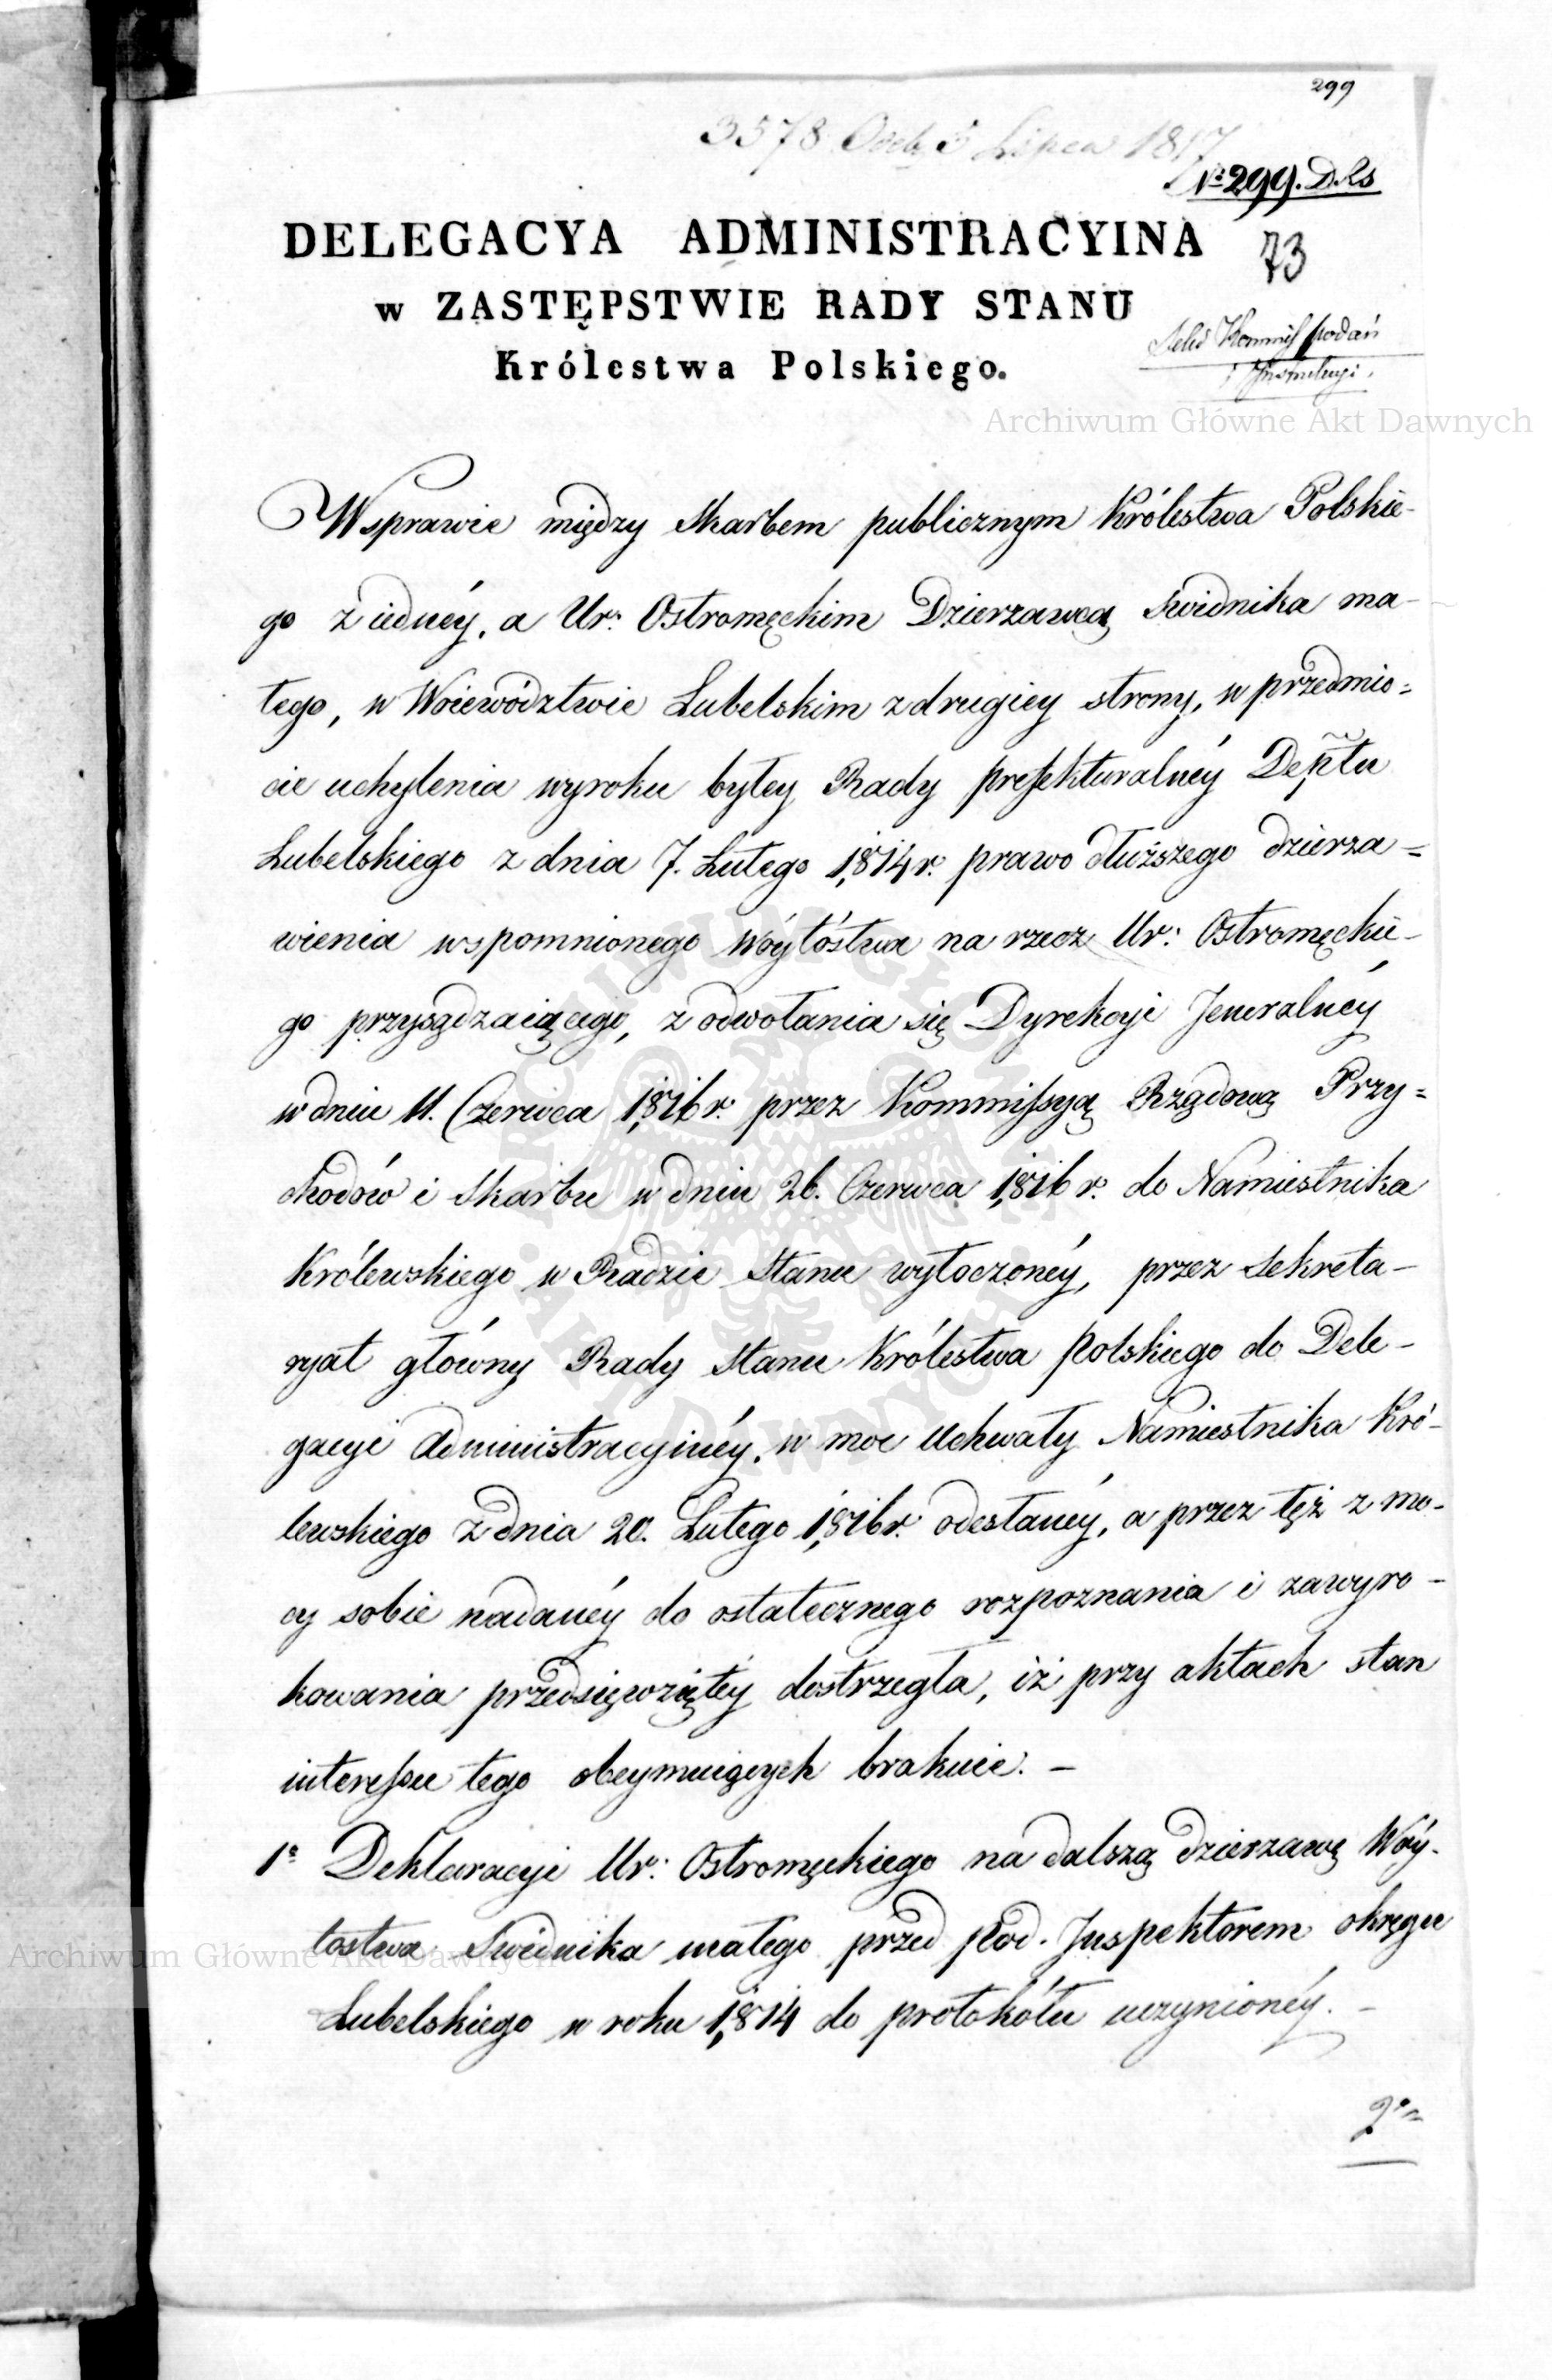 299
3578 Odeb. 5 Lipca 1817
№ 299. D.As
DELEGACYA ADMINISTRACYINA
73
w ZASTĘPSTWIE RADY STANU
Sekc Kommiss podań
Królestwa Polskiego.
i Instrukcyi.
Archiwum Główne Akt Dawnych
W sprawie między Skarbem publicznym Królestwa Polskie-
go z iednéy, a Ur: Ostromęckim Dzierzawcą Swidnika ma-
łego, w Woiewództwie Lubelskim z drugiey strony, w przedmio=
cie uchylenia wyroku byłey Rady prefekturalnéy Deptu
Lubelskiego z dnia 7. Lutego 1814 r. prawo dłuższego dzierza=
wienia wspomnionego Wóytóstwa na rzecz Ur: Ostromęckie-
go przysądzaiącego, z odwołania się Dyrekcyi Jeneralnéy
w dniu 11. Czerwca 1816 r. przez Kommissyą Rządową Przy=
chodów i Skarbu w dniu 26. Czerwca 1816 r. do Namiestnika
Królewskiego w Radzie Stanu wytoczonéy, przez Sekreta-
ryat główny Rady Stanu Królestwa Polskiego do Dele-
gacyi Administracyinéy, w moc Uchwały Namiestnika Kró-
lewskiego z dnia 20. Lutego 1816 r. odesłanéy, a przez tęż z mo-
cy sobie nadanéy do ostatecznego rozpoznania i zawyro-
kowania przedsięwziętéy dostrzegła, iż przy aktach stan
interessu tego obeymuiących brakuie. -
1o Deklaracyi Ur: Ostromęckiego na dalszą dzierzawę Wóy-
tostwa Swidnika małego przed Pod. Inspektorem okręgu
Archiwum Główne Akt Dawnych
Lubelskiego w roku 1814 do protokółu uczynionéy. -
2o=